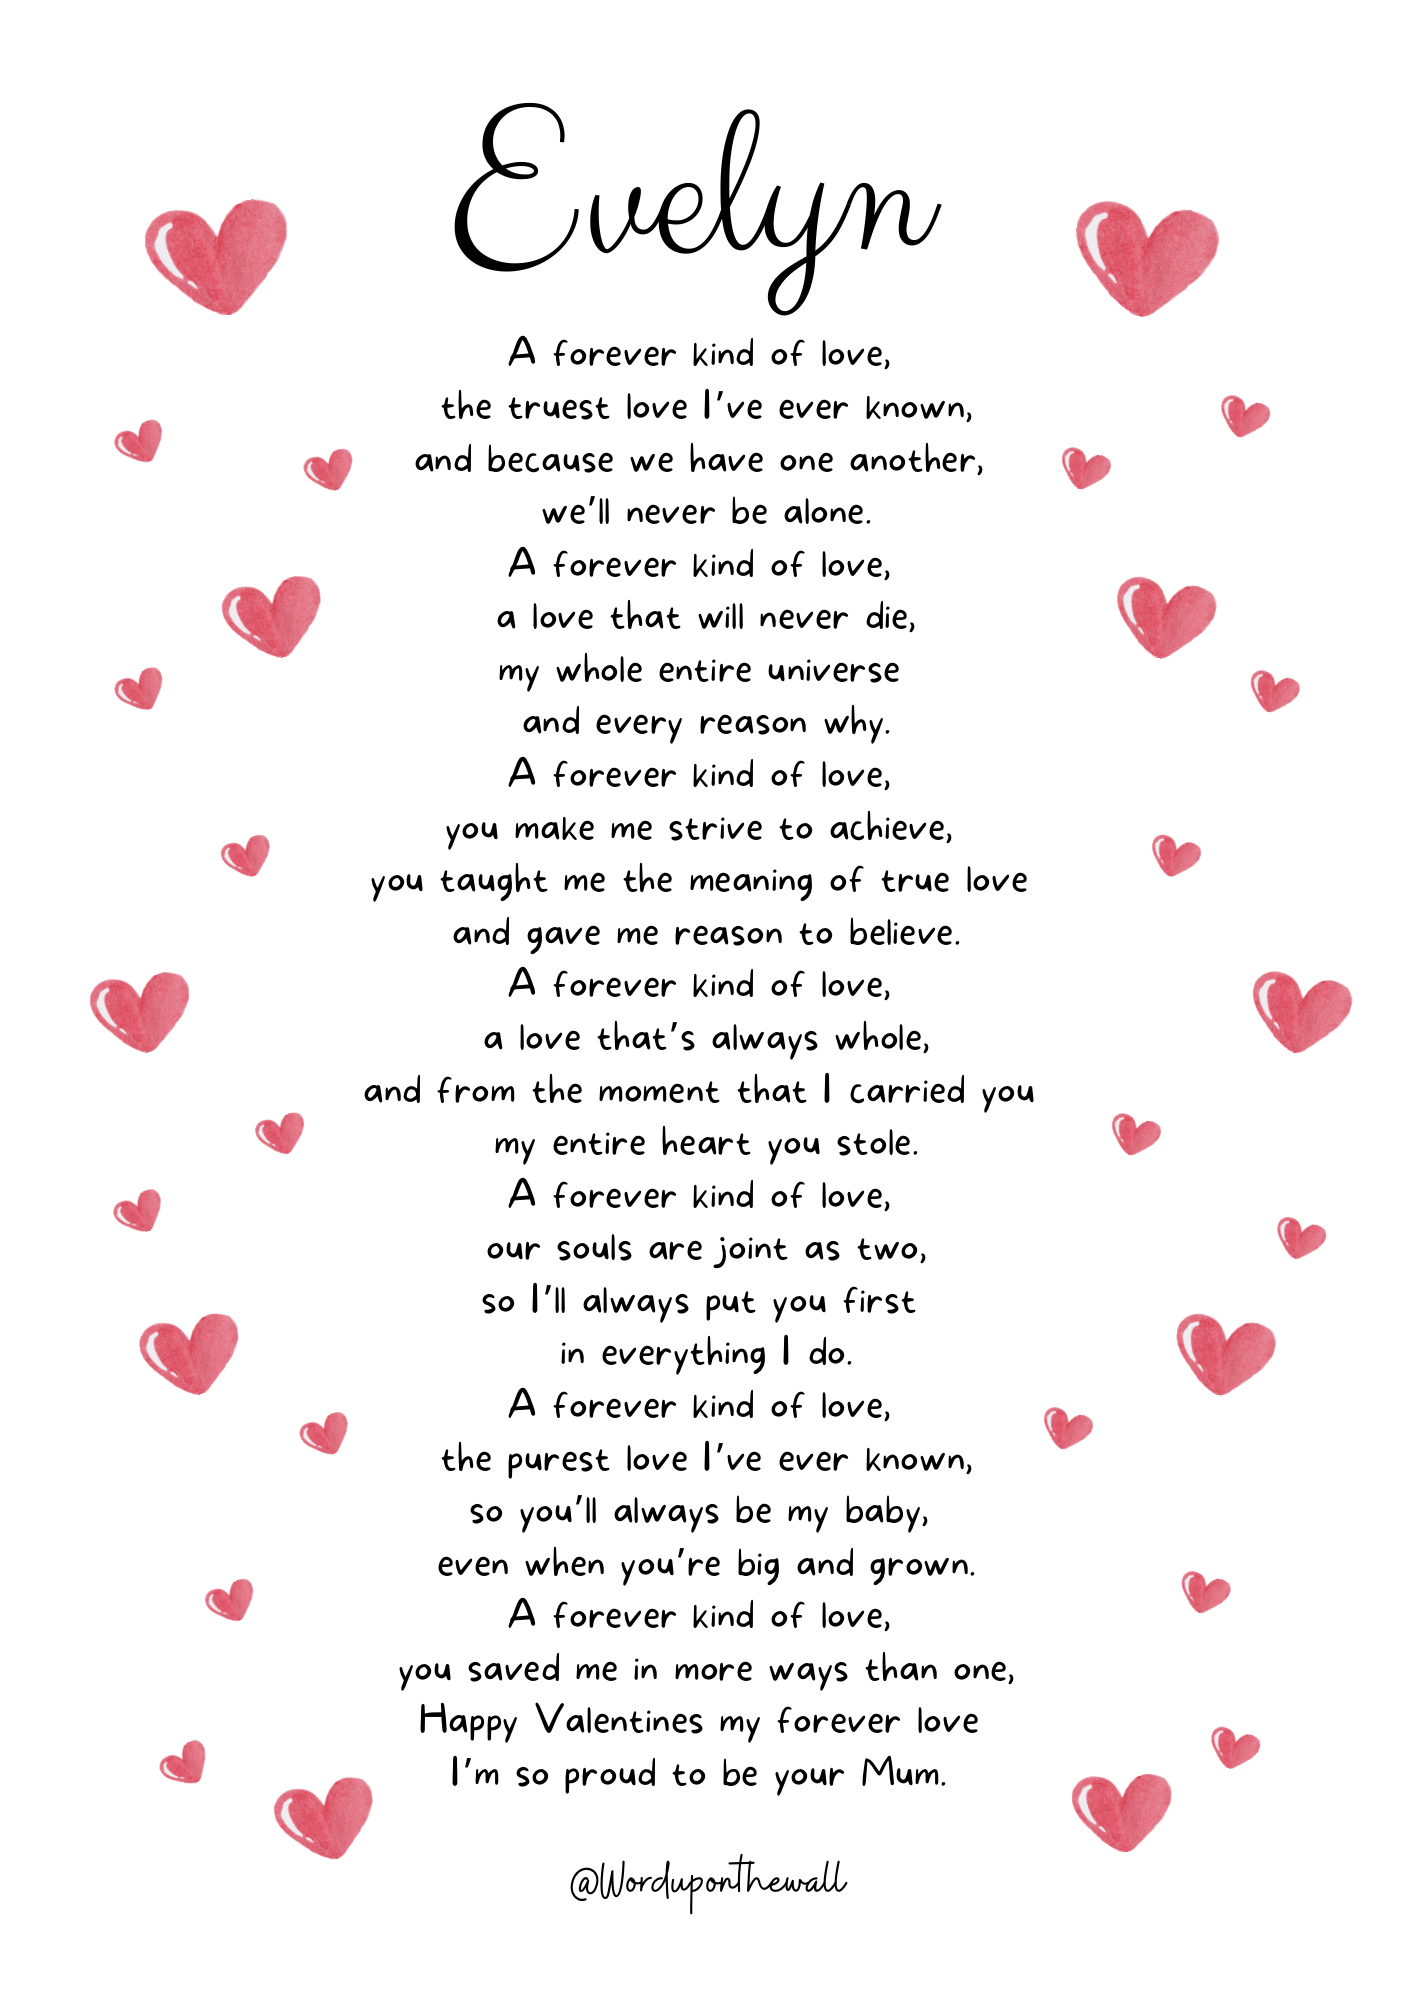 Evelyn
A forever kind of love,
the truest love I've ever known,
and because we have one another,
we'll never be alone.
A forever kind of love,
a love that will never die,
my whole entire universe
and every reason why.
A forever kind of love,
you make me strive to achieve,
you taught me the meaning of true love
and gave me reason to believe.
A forever kind of love,
a love that's always whole,
and from the moment that I carried you
my entire heart you stole.
A forever kind of love,
our souls are joint as two,
so I'll always put you first
in everything I do.
A forever kind of love,
the purest love I've ever known,
so you'll always be my baby,
even when you're big and grown.
A forever kind of love,
you saved me in more ways than one,
Happy Valentines my forever love
I'm so proud to be your Mum.
@Worduponthewall